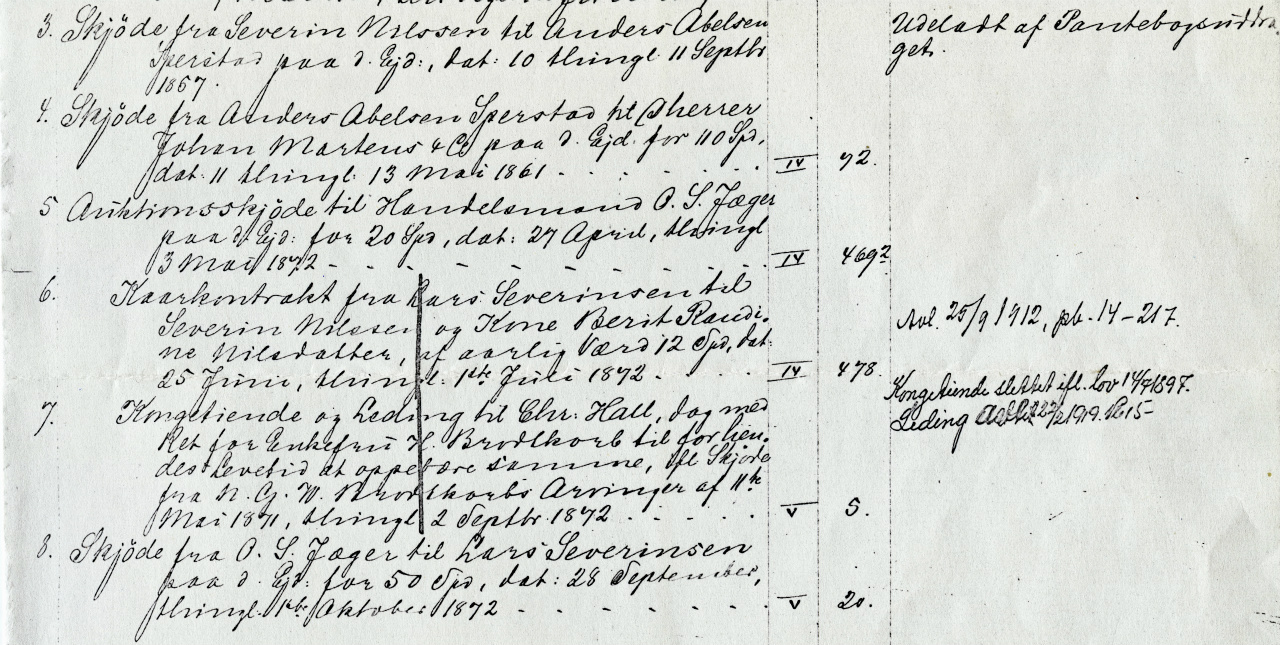 3. Skjöde fra Severin Nilssen til Anders Abelsen
Sperstad paa d. Ejd:, dat: 10 thingl 11 Septbr
1857.
Udeladt af Pantebogsuddra-
get.
4. Skjöde fra Anders Abelsen Sperstad til Dherrer
Johan Martens & Co paa d. Ejd. for 110 Spd,
dat. 11 thingl: 13 Mai 1861 - IV 92.
5 Auktionsskjöde til Handelsmand O. S. Jæger
paa d. Ejd: for 20 Spd, dat: 27 April, thingl
3 Mai 1872 - IV 469 2
6. Kaarkontrakt fra Lars Severinsen til
Severin Nilssen og Kone Berit Randi-
ne Nilsdatter, af aarlig Værd 12 Spd, dat:
25 Juni, thingl. 1ste Juli 1872 - IV 478.
Avl. 25/9 1912, pb. 14 - 217.
7. Kongetiende og Leding til Chr: Hall, dog med
Ret for Enkefru H. Brodtkorb til for hen-
des Levetid at oppebære samme, ifl Skjöde
fra N. C. W. Brodtkorbs Arvinger af 11te
Mai 1871, thingl 2 Septbr 1872 - V 5.
Kongetiende slettet ifl. lov 14/7 1897.
Leding 1919.
8. Skjöde fra O. S. Jæger til Lars Severinsen
paa d. Ejd: for 50 Spd, dat: 28 September,
thingl. 1ste Oktober 1872 - V 20.